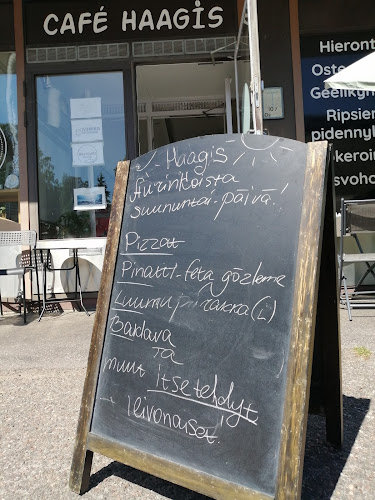 CAFÉ HAAGIS
Hieront
Oste
Geelikyn
Ripsier
pidennyk
keroin
svoho
Haagis
Aurinkoista
suununtai-päivä!
Pizzat
Pinatti-feta gözleme
Luumupiirakka(L)
Baklava
Ja
muut itsetehdyt
leivonaiset!